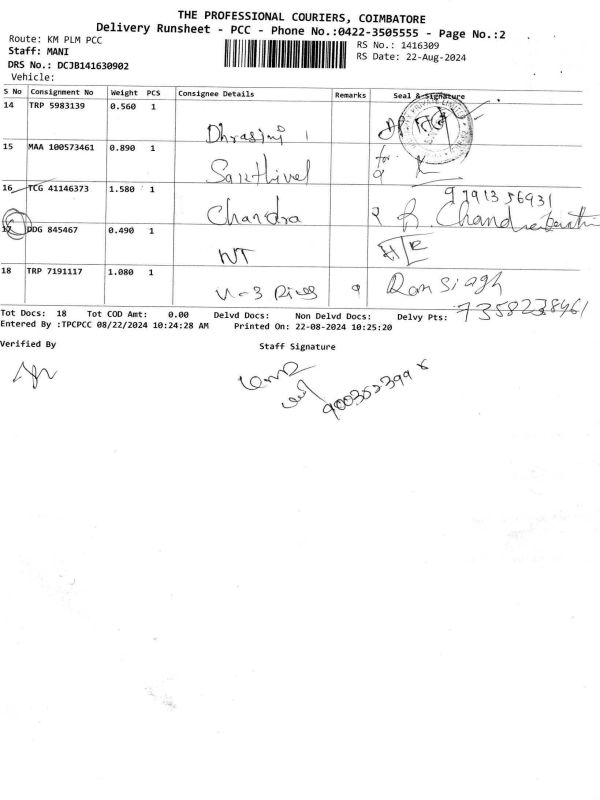 THE PROFESSIONAL COURIERS, COIMBATORE
Delivery Runsheet - PCC - Phone No.:0422-3505555 - Page No.:2
Route: KM PLM PCC
RS No.: 1416309
Staff: MANI
RS Date: 22-Aug-2024
DRS No.: DCJB141630902
Vehicle:
S No Consignment No Weight PCS Consignee Details Remarks Seal & Signature
14 TRP 5983139 0.560 1
15 MAA 100573461 0.890 1 Sakthivel for
16 TCG 41146373 1.580 1 Chandra
17 DDG 845467 0.490 1 NT
18 TRP 7191117 1.080 1 Ram Siagh
Tot Docs: 18 Tot COD Amt: 0.00 Delvd Docs: Non Delvd Docs: Delvy Pts:
Entered By :TPCPCC 08/22/2024 10:24:28 AM Printed On: 22-08-2024 10:25:20
Verified By Staff Signature